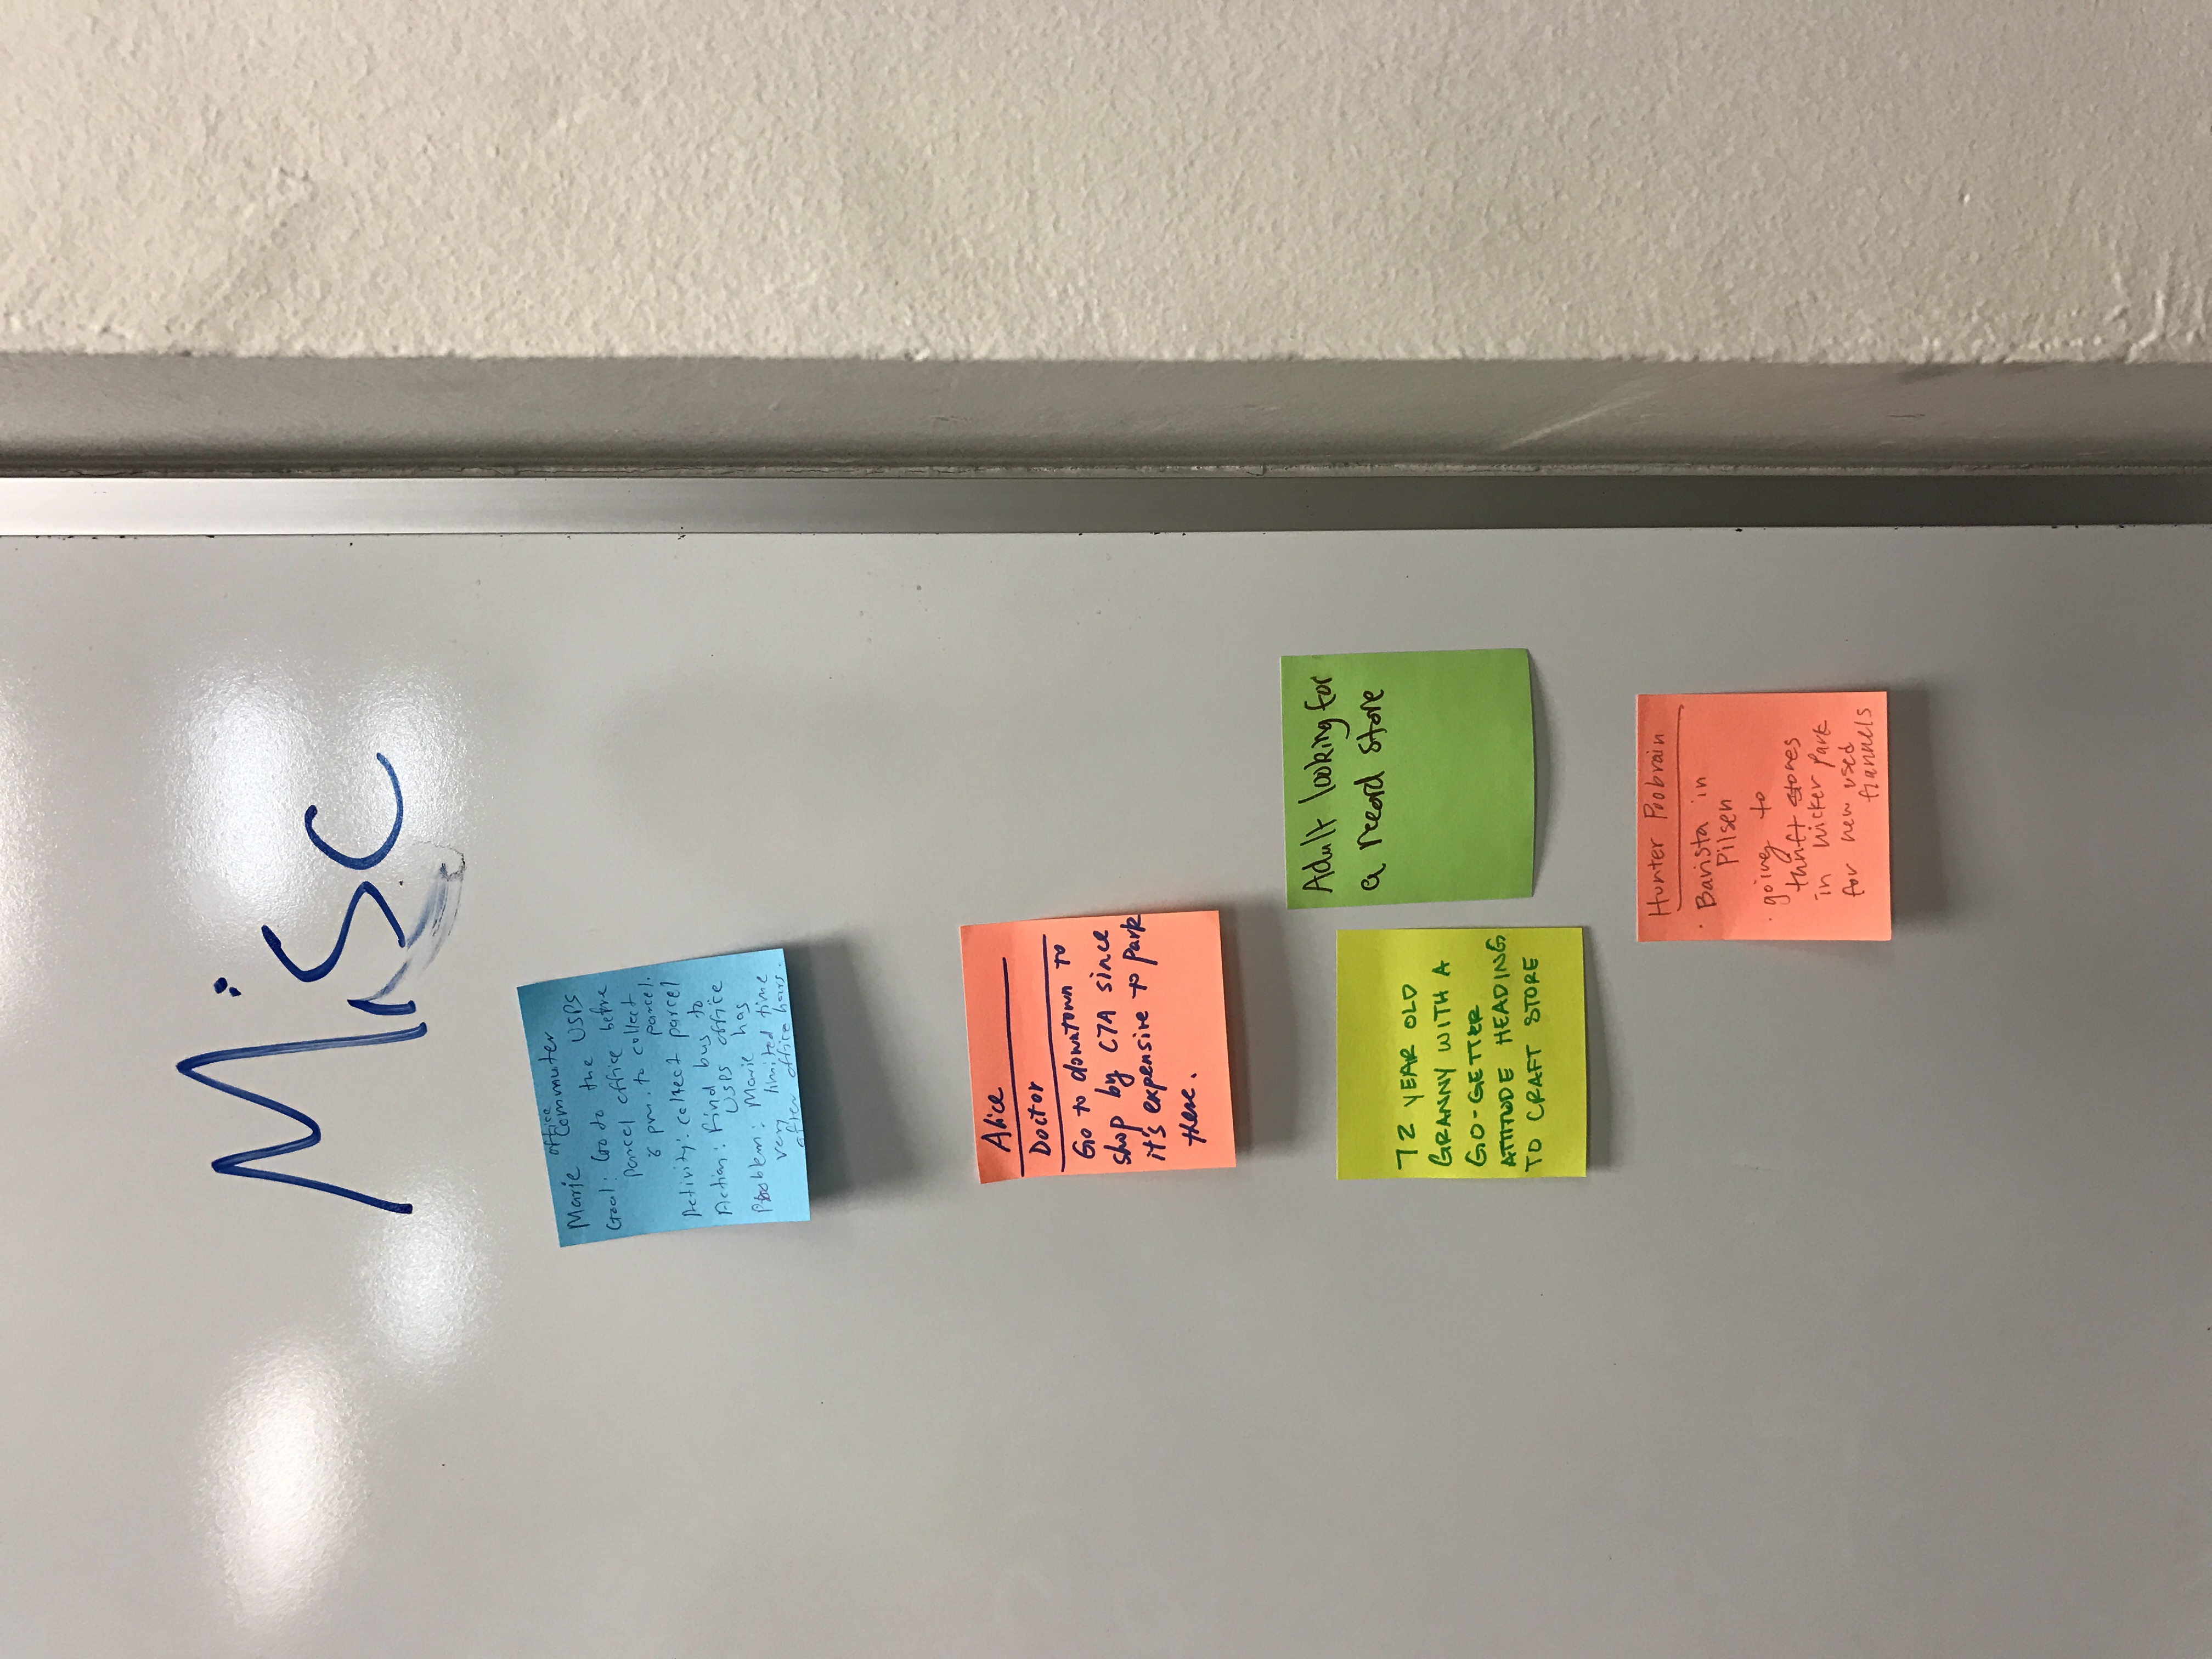 Misc
office
Marie Commuter
Goal: Go to the USPS
parcel office before
6 pm. to collect
parcel.
Activity: collect parcel
Action: Find bus to
USPS office
Problem: Marie has
very limited time
after office hours.
Alice
Doctor
Go to downtown to
shop by CTA since
it's expensive to park
there.
Adult looking for
a record store
72 YEAR OLD
GRANNY WITH A
GO-GETTER
ATTITUDE HEADING
TO CRAFT STORE
Hunter Poobrain
· Barista in
Pilsen
· going to
thrift stores
in Wicker Park
for new used
flannels